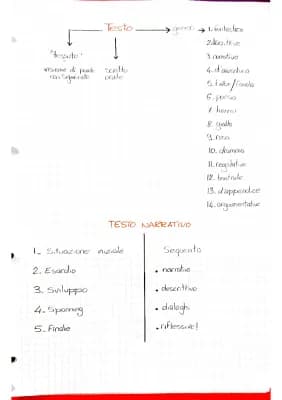 Testo → genere → 1. fantastico
2. descrittivo
3. narrativo
4. d'avventura
5. fiaba/favola
6. poesia
7. horror
8. giallo
9. rosa
10. drammatico
11. regolativo
12. teatrale
13. d'appendice
14. argomentativo
scritto
orale
TESTO NARRATIVO
1. Situazione iniziale
2. Esordio
3. Sviluppo
4. Spanning
5. Finale
Sequenza
• narrative
• descrittivo
• dialoghi
• riflessive!